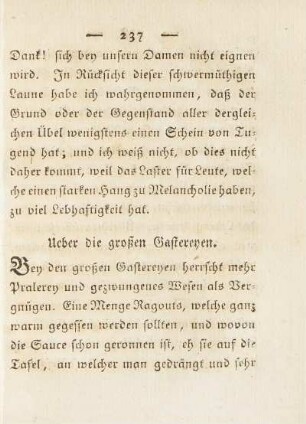 — 237 —
Dank! sich bey unsern Damen nicht eignen
wird. In Rücksicht dieser schwermüthigen
Laune habe ich wahrgenommen, daß der
Grund oder der Gegenstand aller derglei-
chen Übel wenigstens einen Schein von Tu-
gend hat; und ich weiß nicht, ob dies nicht
daher kommt, weil das Laster für Leute, wel-
che einen starken Hang zu Melancholie haben,
zu viel Lebhaftigkeit hat.
Ueber die großen Gastereyen.
Bey den großen Gastereyen herrscht mehr
Pralerey und gezwungenes Wesen als Ver-
gnügen. Eine Menge Ragouts, welche ganz
warm gegessen werden sollten, und wovon
die Sauce schon geronnen ist, eh sie auf die
Tafel, an welcher man gedrängt und sehr